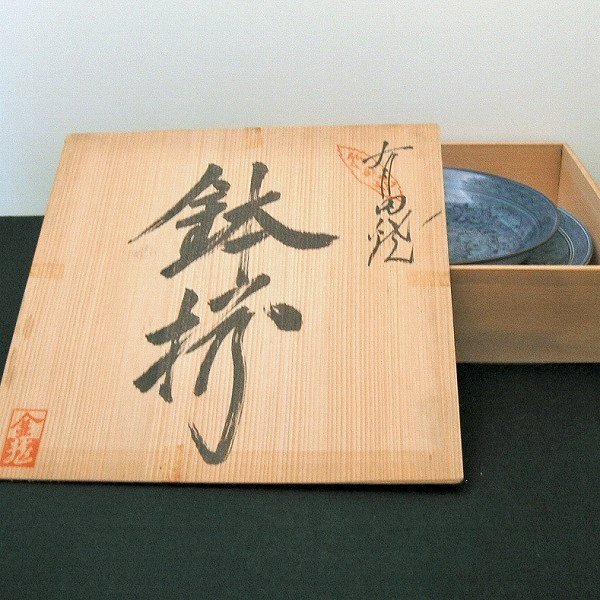 有田焼
鉢揃
金龍